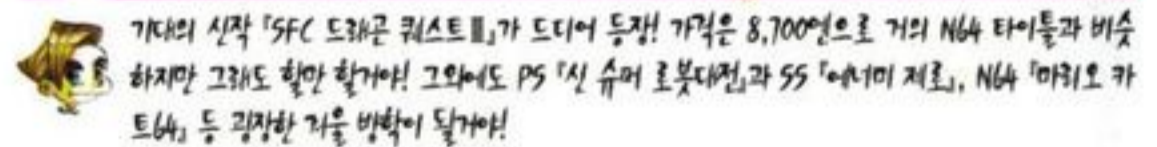 기대의 신작 「SFC 드래곤 퀘스트Ⅲ」가 드디어 등장! 가격은 8,700엔으로 거의 N64 타이틀과 비슷
하지만 그래도 할만 할거야! 그외에도 PS 「신 슈퍼 로봇대전」과 SS 「에너미 제로」, N64 「마리오 카
트64」 등 굉장한 겨울 방학이 될거야!